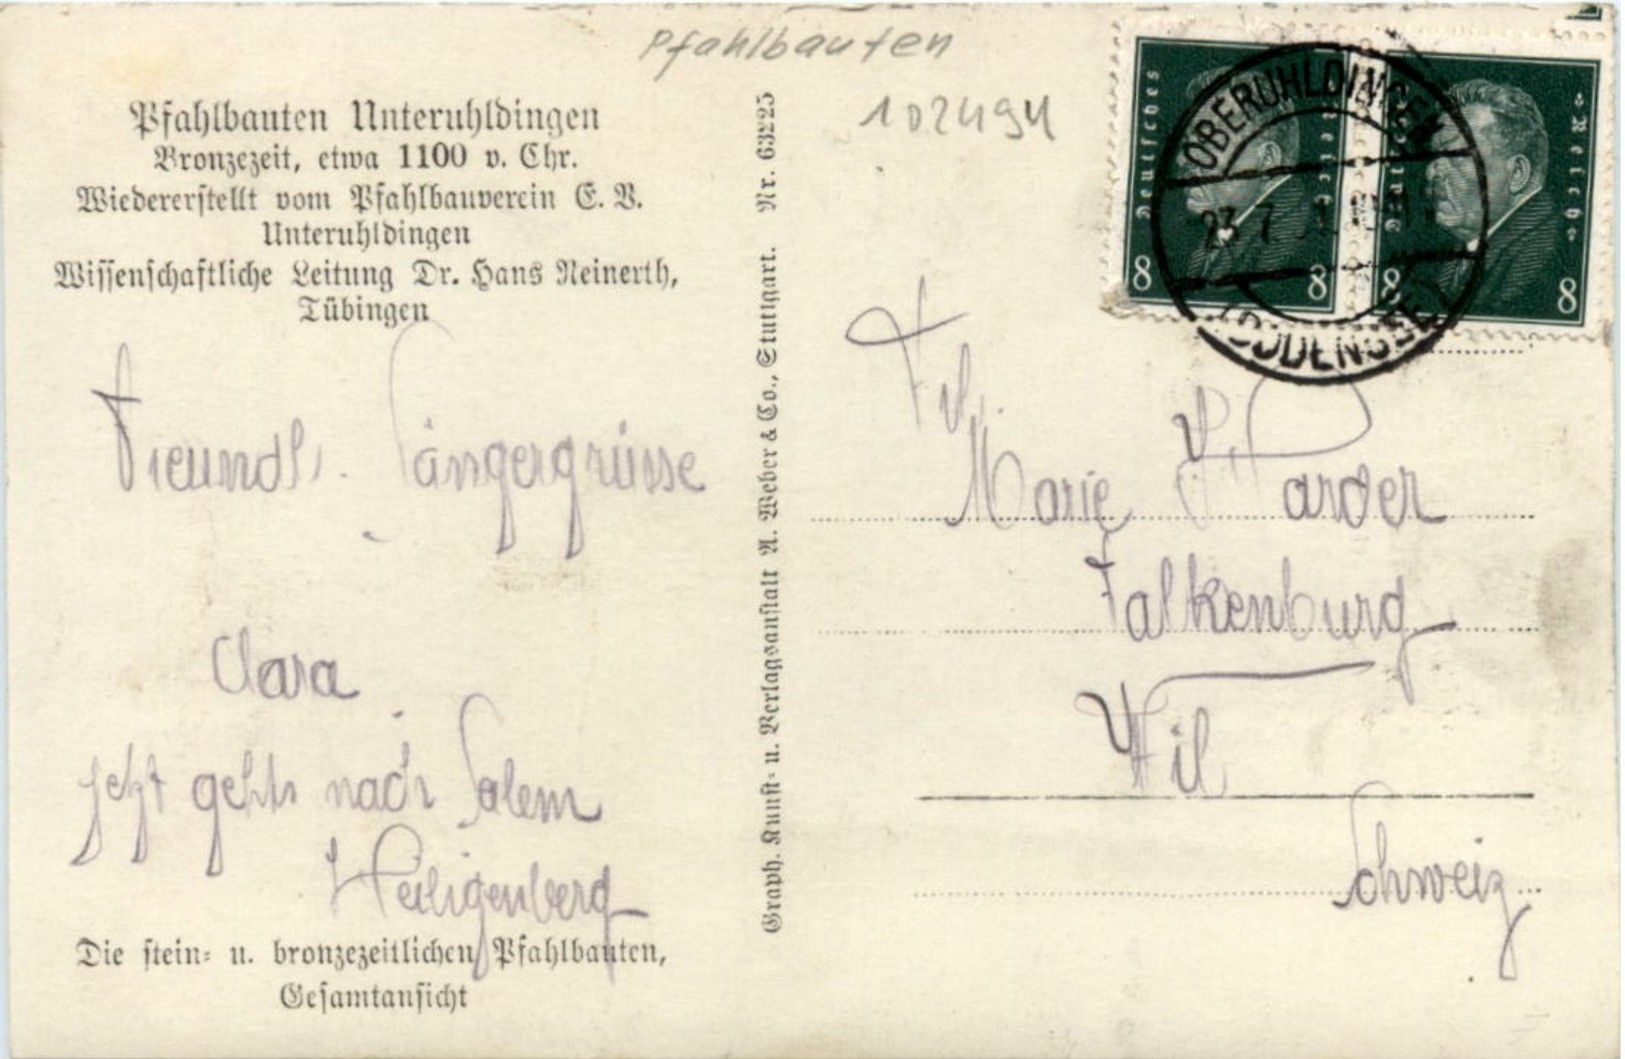 Pfahlbauten
102494
Pfahlbauten Unteruhldingen
Bronzezeit, etwa 1100 v. Chr.
Wiedererstellt vom Pfahlbauverein E. V.
Unteruhldingen
Wissenschaftliche Leitung Dr. Hans Reinerth,
Tübingen
Freundl. Sängergrüsse
Clara
jetzt gehts nach Salem
Heiligenberg
Die stein- u. bronzezeitlichen Pfahlbauten,
Gesamtansicht
Graph. Kunst- u. Verlagsanstalt A. Weber & Co., Stuttgart. Nr. 63225
Deutsches Reich
8 8
Deutsches Reich
8 8
OBERUHLDINGEN
23.7.
(BODENSEE)
Frl.
Marie
Falkenburg
Wil
Schweiz